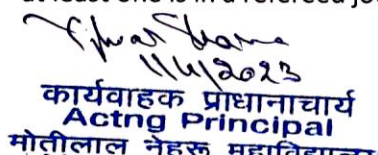 at least one is in a refereed jo
11/4/2023
कार्यवाहक प्राधानाचार्य
Actng Principal
मोतीलाल नेहरू महाविद्यालय